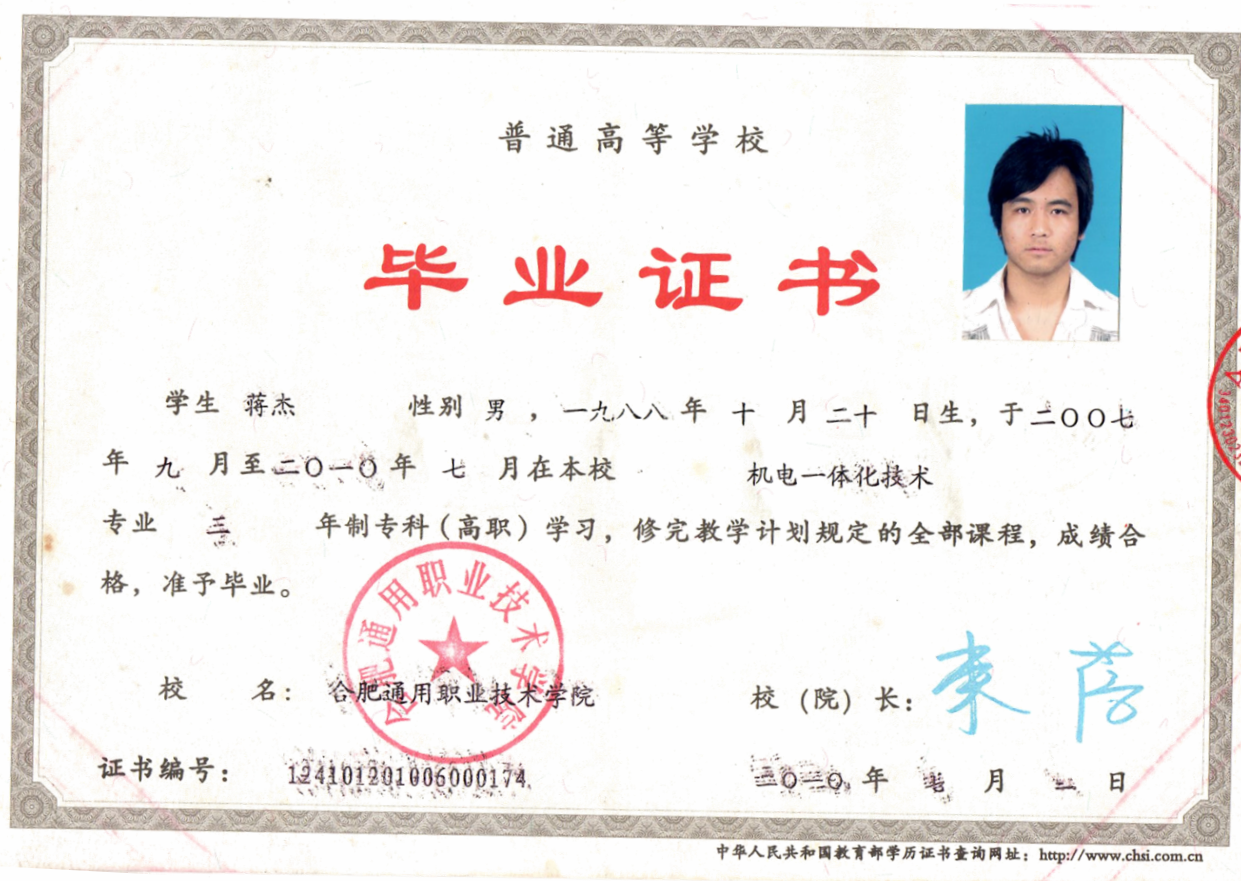 普通高等学校
毕业证书
学生 蒋杰 性别 男 ，一九八八 年 十 月 二十 日生，于二〇〇七
年 九 月至二〇一〇年 七 月在本校 机电一体化技术
专业 三 年制专科（高职）学习，修完教学计划规定的全部课程，成绩合
格，准予毕业。
合肥通用职业技术学院
校 名： 合肥通用职业技术学院
校（院）长：
证书编号： 124101201006000174
二〇一〇 年 七 月 日
中华人民共和国教育部学历证书查询网址：http://www.chsi.com.cn